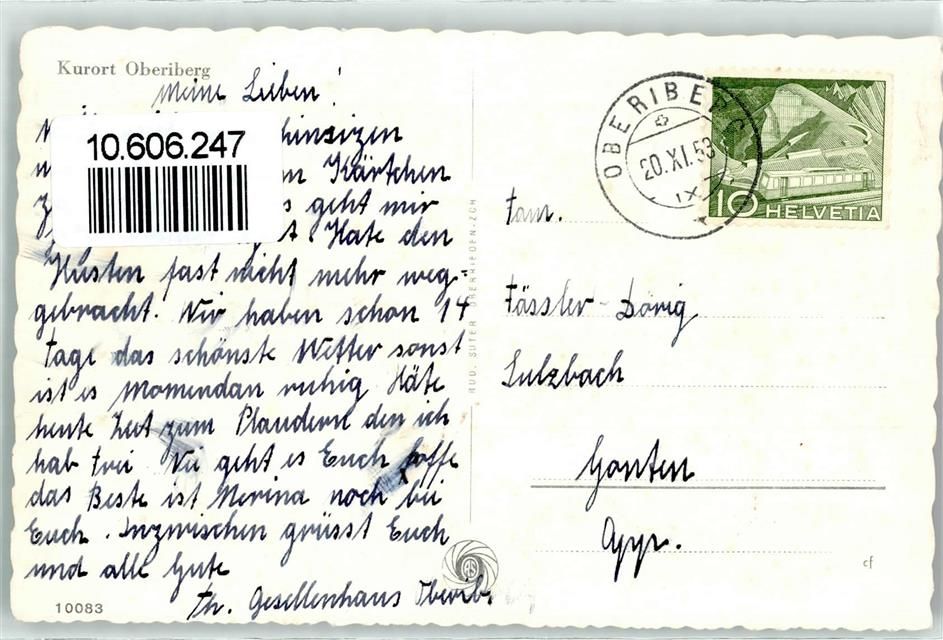 Kurort Oberiberg
Meine Lieben!
hinsizen
Kärtchen
s geht mir
Hate den
Husten fast nicht mehr weg=
gebracht. Wir haben schon 14
Tage das schönste Wetter sonst
ist es Momendan ruhig Häte
heute Zeit zum Plaudern den ich
hab frei Wie geht es Euch hoffe
das Beste ist Merina noch bei
Euch. Inzwischen grüsst Euch
und alle Gute
Th. Gesellenhaus Oberib.
10083
10.606.247
RUD. SUTER OBERRIEDEN-ZCH.
OBERIBERG
20.XI.53
IX
10 HELVETIA
Fam.
Fässler-Dörig
Sulzbach
Gonten
App.
cf